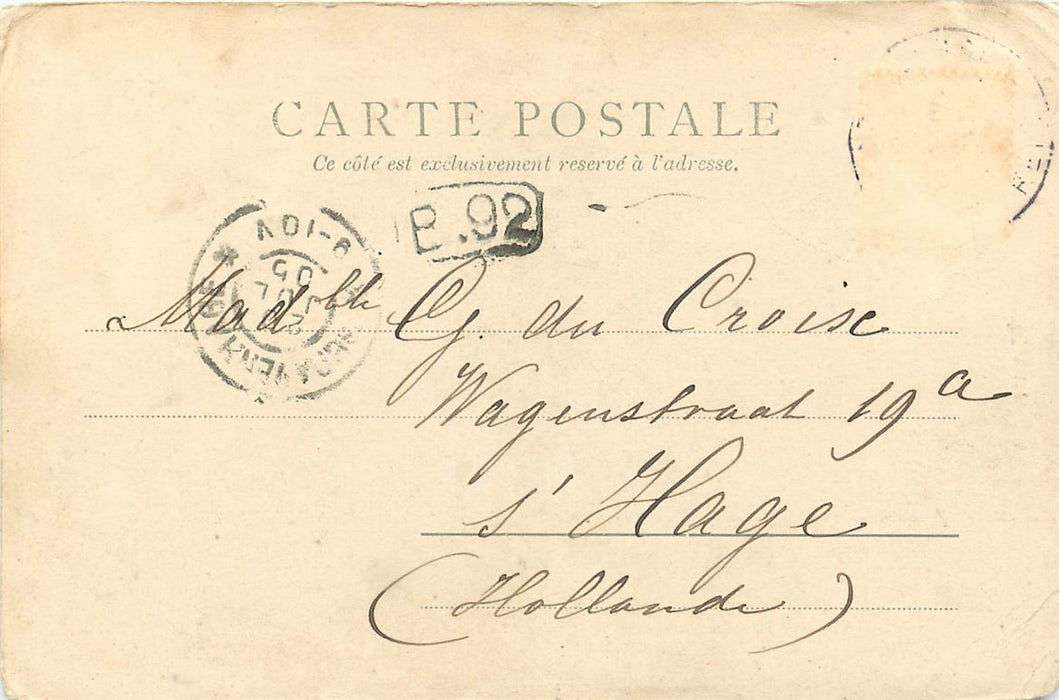 CARTE POSTALE
Ce côté est exclusivement reservé à l'adresse.
B.92
9-10V
JUL
05
Mad^lle G. du Croise
Wagenstraat 19^a
s' Hage
(Hollande)